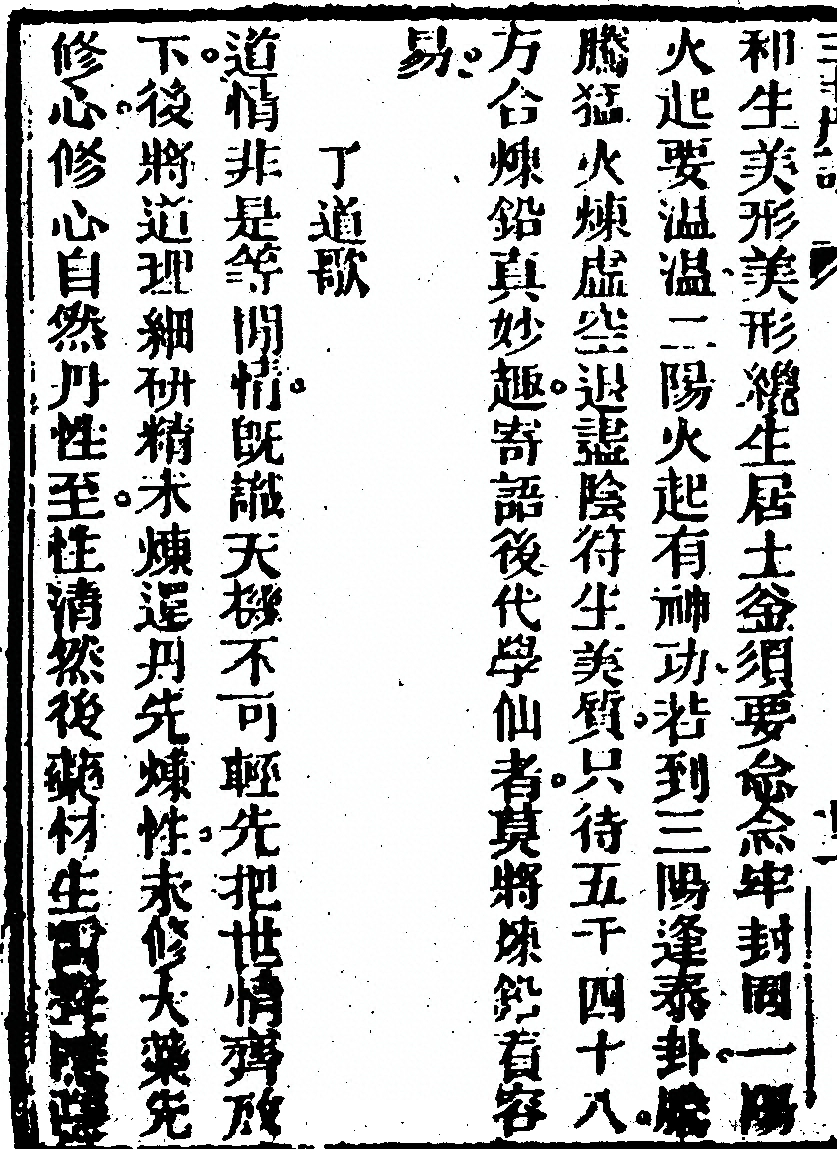 和生美形美形纔生居土釜須要念念牢封固一陽
火起要溫溫二陽火起有神功若到三陽逢泰卦騰
騰猛火煉虛空退盡陰符生美質只待五千四十八
方合煉鉛真妙趣寄語後代學仙者莫將煉鉛看容
易
了道歌
道情非是等閒情既識天機不可輕先把世情齊放
下後將道理細研精未煉還丹先煉性未修大藥先
修心修心自然丹性至性清然後藥材生雷聲隱隱